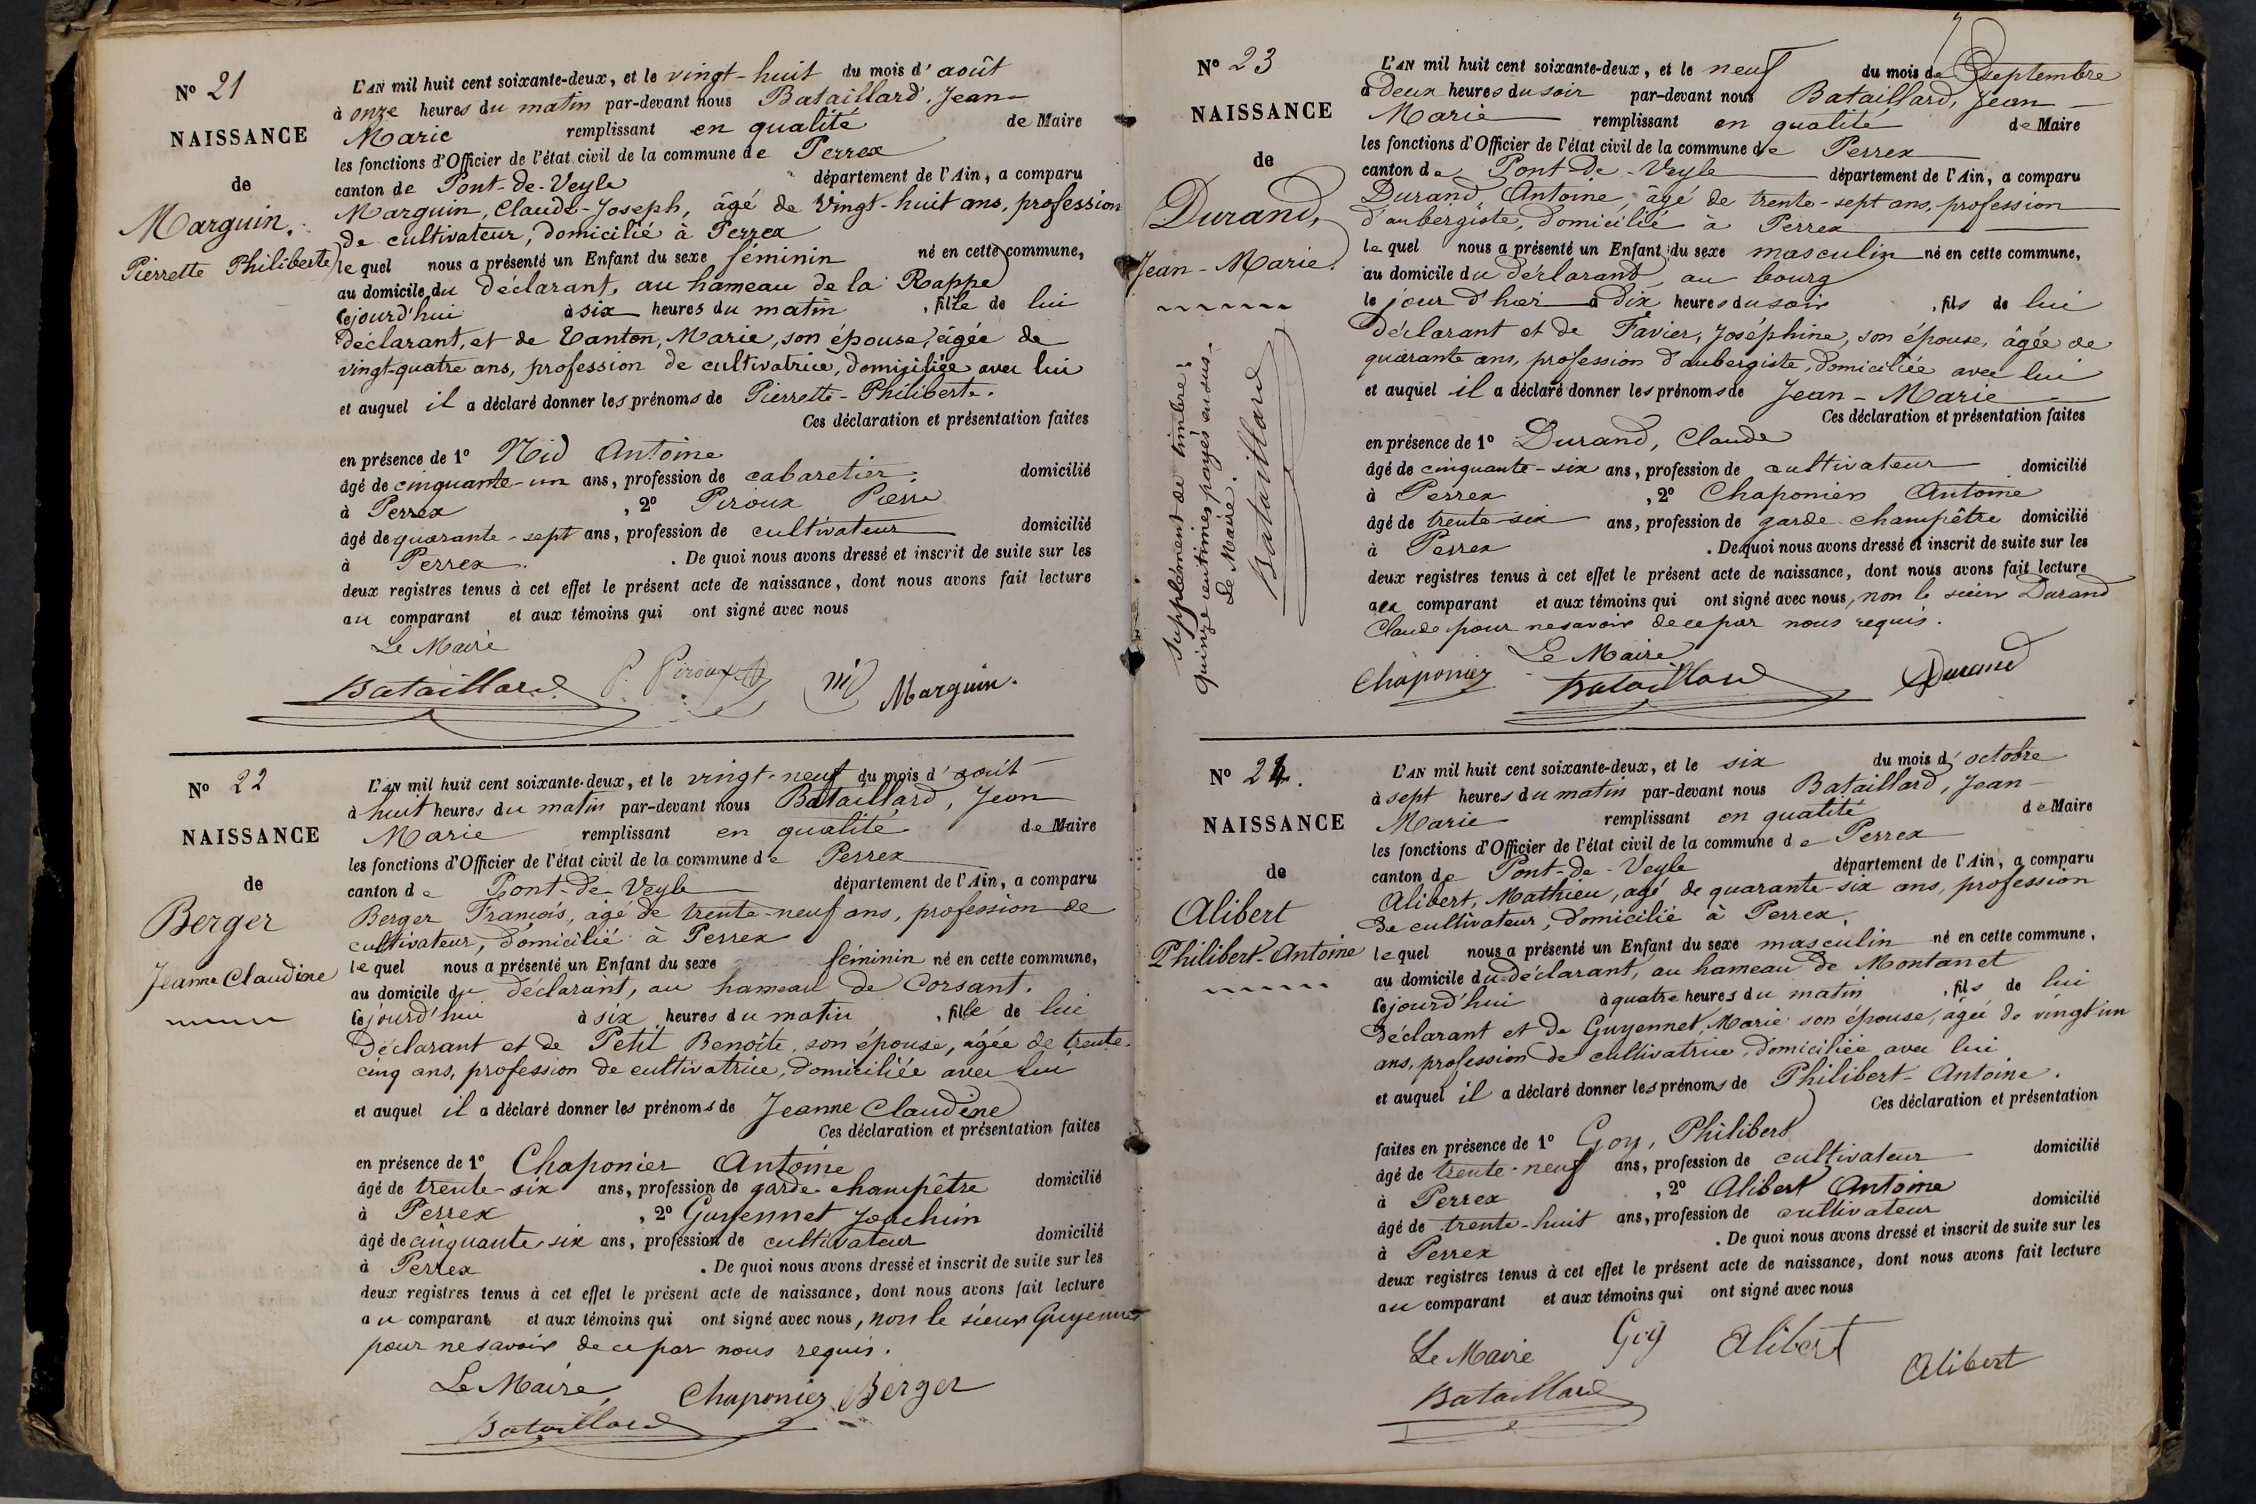 N° 21
NAISSANCE
de
Marguin,
Pierrette Philiberte
L'AN mil huit cent soixante-deux, et le vingt-huit du mois d'août
à onze heures du matin par-devant nous Bataillard, Jean-
Marie remplissant en qualité de Maire
les fonctions d'Officier de l'état civil de la commune de Perrex
canton de Pont-de-Veyle département de l'Ain, a comparu
Marguin, Claude-Joseph, âgé de vingt-huit ans, profession
de cultivateur, domicilié à Perrex
lequel nous a présenté un Enfant du sexe féminin né en cette commune,
au domicile du déclarant, au hameau de la Rappe
cejourd'hui à six heures du matin, fille de lui
déclarant, et de Tanton, Marie, son épouse, âgée de
vingt-quatre ans, profession de cultivatrice, domiciliée avec lui
et auquel il a déclaré donner les prénoms de Pierrette-Philiberte.
Ces déclaration et présentation faites
en présence de 1° Nid Antoine
âgé de cinquante-un ans, profession de cabaretier. domicilié
à Perrex, 2° Piroux Pierre
âgé de quarante-sept ans, profession de cultivateur domicilié
à Perrex. De quoi nous avons dressé et inscrit de suite sur les
deux registres tenus à cet effet le présent acte de naissance, dont nous avons fait lecture
au comparant et aux témoins qui ont signé avec nous
Le Maire
Bataillard P. Piroux Nid Marguin.
N° 22
NAISSANCE
de
Berger
Jeanne Claudine
L'AN mil huit cent soixante-deux, et le vingt-neuf du mois d'août
à huit heures du matin par-devant nous Bataillard, Jean
Marie remplissant en qualité de Maire
les fonctions d'Officier de l'état civil de la commune de Perrex
canton de Pont-de-Veyle département de l'Ain, a comparu
Berger François, âgé de trente-neuf ans, profession de
cultivateur, domicilié à Perrex
lequel nous a présenté un Enfant du sexe féminin né en cette commune,
au domicile du déclarant, au hameau de Corsant.
cejourd'hui à six heures du matin, fille de lui
déclarant et de Petit Benoîte, son épouse, âgée de trente-
cinq ans, profession de cultivatrice, domiciliée avec lui
et auquel il a déclaré donner les prénoms de Jeanne Claudine
Ces déclaration et présentation faites
en présence de 1° Chaponier Antoine
âgé de trente-six ans, profession de garde champêtre domicilié
à Perrex, 2° Guyennet Joachim
âgé de cinquante six ans, profession de cultivateur domicilié
à Perrex. De quoi nous avons dressé et inscrit de suite sur les
deux registres tenus à cet effet le présent acte de naissance, dont nous avons fait lecture
au comparant et aux témoins qui ont signé avec nous, non le sieur Guyennet
pour ne savoir de ce par nous requis.
Le Maire, Chaponier Berger
Bataillard
N° 23
NAISSANCE
de
Durand,
Jean-Marie.
Supplément de timbre:
quinze centimes payés en sus.
Le Maire.
Bataillard
L'AN mil huit cent soixante-deux, et le neuf du mois de septembre
à deux heures du soir par-devant nous Bataillard, Jean-
Marie remplissant en qualité de Maire
les fonctions d'Officier de l'état civil de la commune de Perrex
canton de Pont-de-Veyle département de l'Ain, a comparu
Durand, Antoine, âgé de trente-sept ans, profession
d'aubergiste, domicilié à Perrex
lequel nous a présenté un Enfant du sexe masculin né en cette commune,
au domicile du déclarant, au bourg
le jour d'hier à dix heures du soir, fils de lui
déclarant et de Favier, Joséphine, son épouse, âgée de
quarante ans, profession d'aubergiste, domiciliée avec lui
et auquel il a déclaré donner les prénoms de Jean-Marie
Ces déclaration et présentation faites
en présence de 1° Durand, Claude
âgé de cinquante-six ans, profession de cultivateur domicilié
à Perrex, 2° Chaponier Antoine
âgé de trente-six ans, profession de garde-champêtre domicilié
à Perrex. De quoi nous avons dressé et inscrit de suite sur les
deux registres tenus à cet effet le présent acte de naissance, dont nous avons fait lecture
aux comparant et aux témoins qui ont signé avec nous, non le sieur Durand
Claude pour ne savoir de ce par nous requis.
Le Maire
Chaponier Bataillard Durand
N° 24.
NAISSANCE
de
Alibert
Philibert-Antoine
L'AN mil huit cent soixante-deux, et le six du mois d'octobre
à sept heures du matin par-devant nous Bataillard, Jean-
Marie remplissant en qualité de Maire
les fonctions d'Officier de l'état civil de la commune de Perrex
canton de Pont-de-Veyle département de l'Ain, a comparu
Alibert, Mathieu, âgé de quarante-six ans, profession
de cultivateur, domicilié à Perrex,
lequel nous a présenté un Enfant du sexe masculin né en cette commune,
au domicile du déclarant, au hameau de Montanet
cejourd'hui à quatre heures du matin, fils de lui
déclarant et de Guyennet, Marie son épouse, âgée de vingt-un
ans, profession de cultivatrice, domiciliée avec lui
et auquel il a déclaré donner les prénoms de Philibert-Antoine.
Ces déclaration et présentation
faites en présence de 1° Goy, Philibert
âgé de trente-neuf ans, profession de cultivateur domicilié
à Perrex, 2° Alibert Antoine
âgé de trente-huit ans, profession de cultivateur domicilié
à Perrex. De quoi nous avons dressé et inscrit de suite sur les
deux registres tenus à cet effet le présent acte de naissance, dont nous avons fait lecture
au comparant et aux témoins qui ont signé avec nous
Le Maire Goy Alibert Alibert
Bataillard